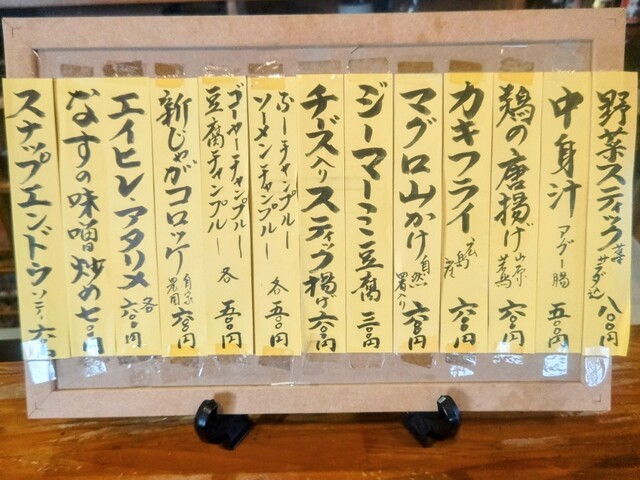 野菜スティック 菜サラダ込 八〇〇円
中身汁 アグー腸 五〇〇円
鶏の唐揚げ 山原若鶏 六〇〇円
カキフライ 広島産 六〇〇円
マグロ山かけ 自然薯入り 六〇〇円
ジーマーミ豆腐 三〇〇円
チーズ入りスティック揚げ 六〇〇円
ふーチャンプルー
ソーメンチャンプルー 各 五〇〇円
ゴーヤーチャンプルー
豆腐チャンプルー 各 五〇〇円
新じゃがコロッケ 自家製 六〇〇円
エイヒレ・アタリメ 各 六〇〇円
なすの味噌炒め 七〇〇円
スナップエンドウ ソティ 六〇〇円